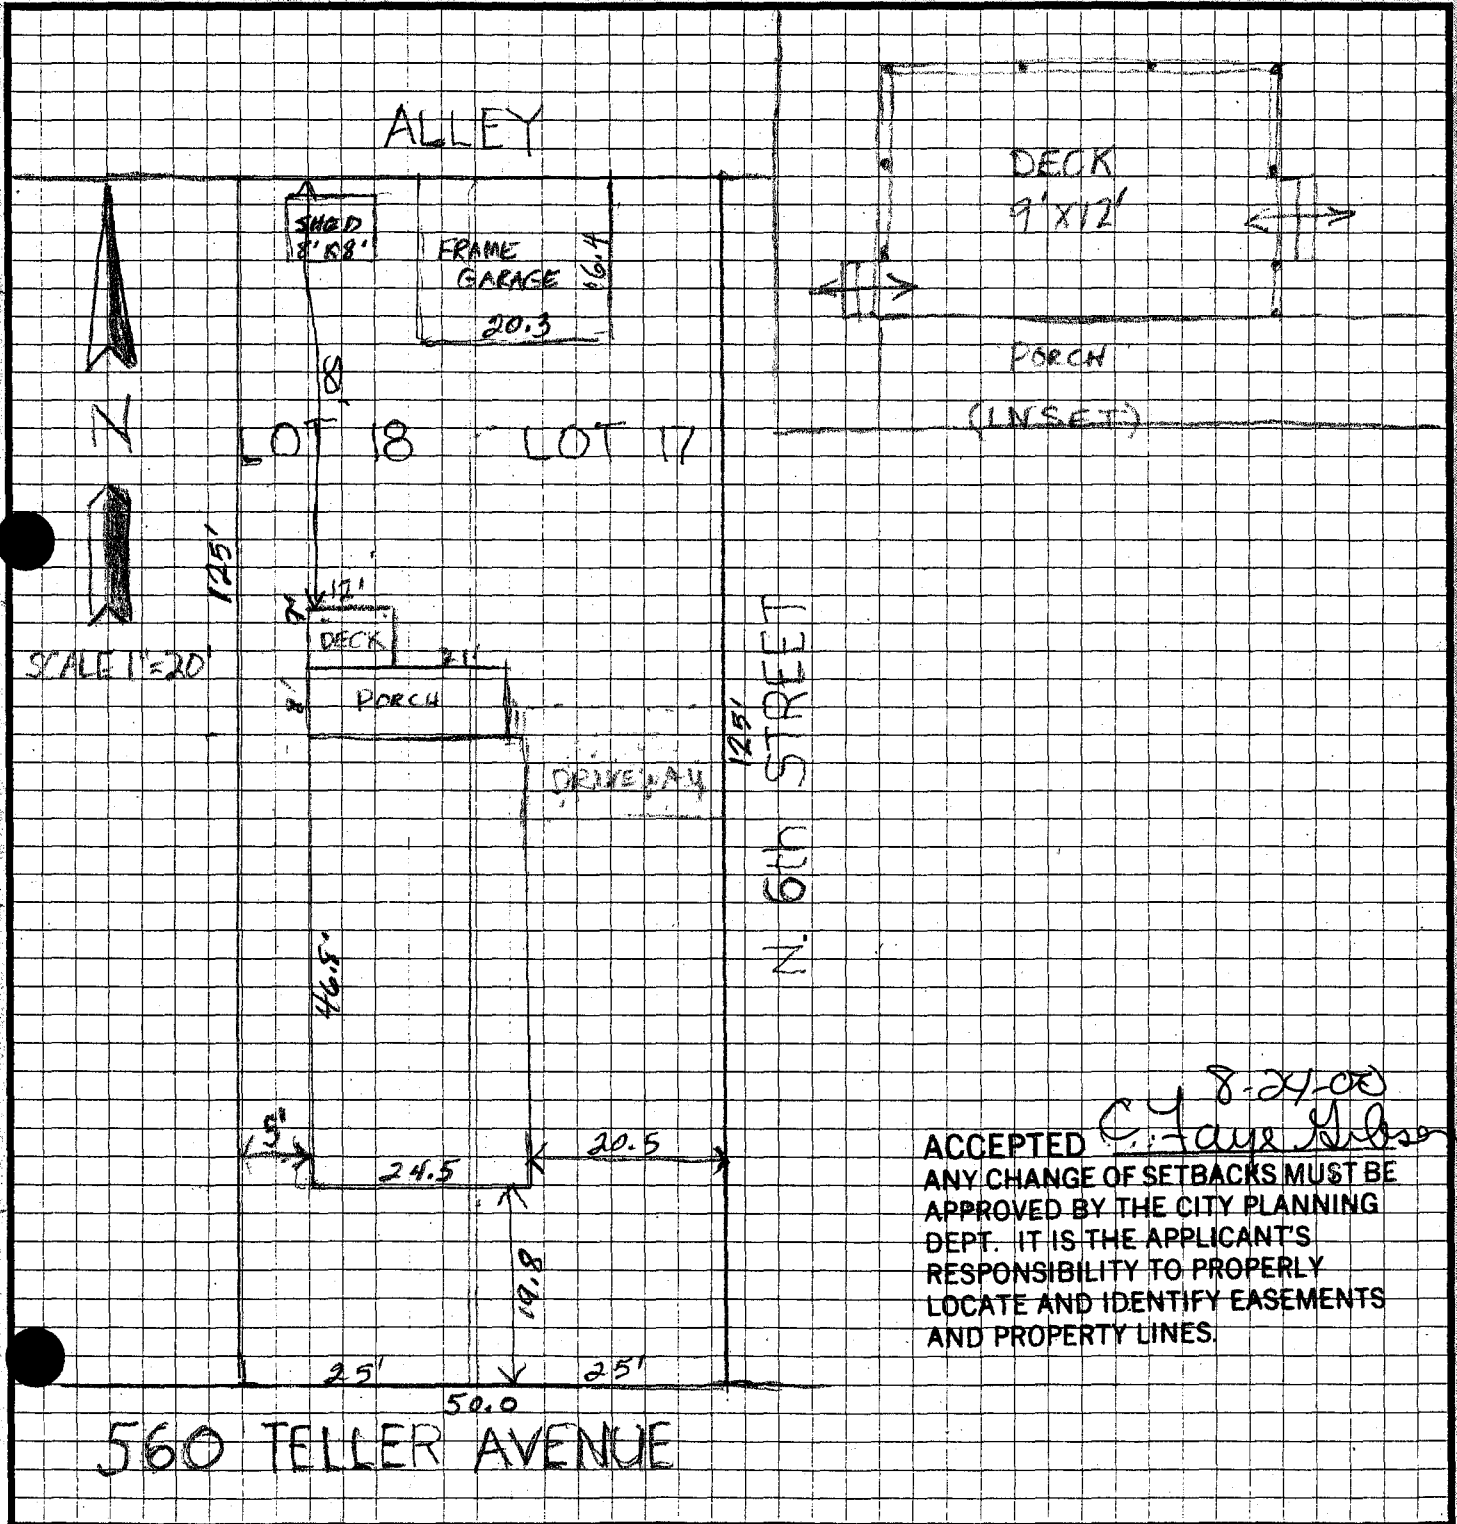 ALLEY
SHED
8' X 8'
FRAME
GARAGE
16.4
20.3
DECK
9' X 12'
PORCH
(INSET)
N
LOT 18
LOT 17
125'
12'
DECK
21'
8'
PORCH
SCALE 1"=20'
DRIVEWAY
125'
N. 6th STREET
46.8'
5'
24.5
20.5
19.8
25'
25'
50.0
560 TELLER AVENUE
8-24-00
ACCEPTED C. Faye Gibson
ANY CHANGE OF SETBACKS MUST BE
APPROVED BY THE CITY PLANNING
DEPT. IT IS THE APPLICANT'S
RESPONSIBILITY TO PROPERLY
LOCATE AND IDENTIFY EASEMENTS
AND PROPERTY LINES.